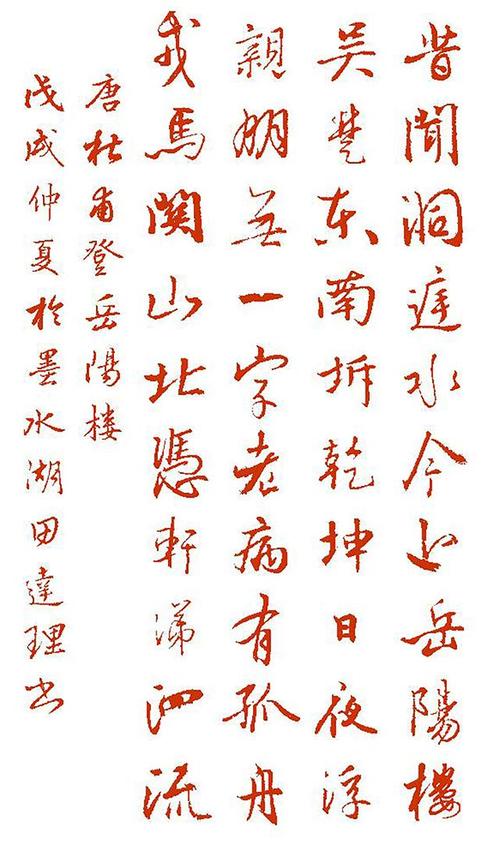 昔聞洞庭水今上岳陽樓
吳楚東南坼乾坤日夜浮
親朋無一字老病有孤舟
戎馬関山北憑軒涕泗流
唐杜甫登岳陽樓
戊戌仲夏於墨水湖田達理書